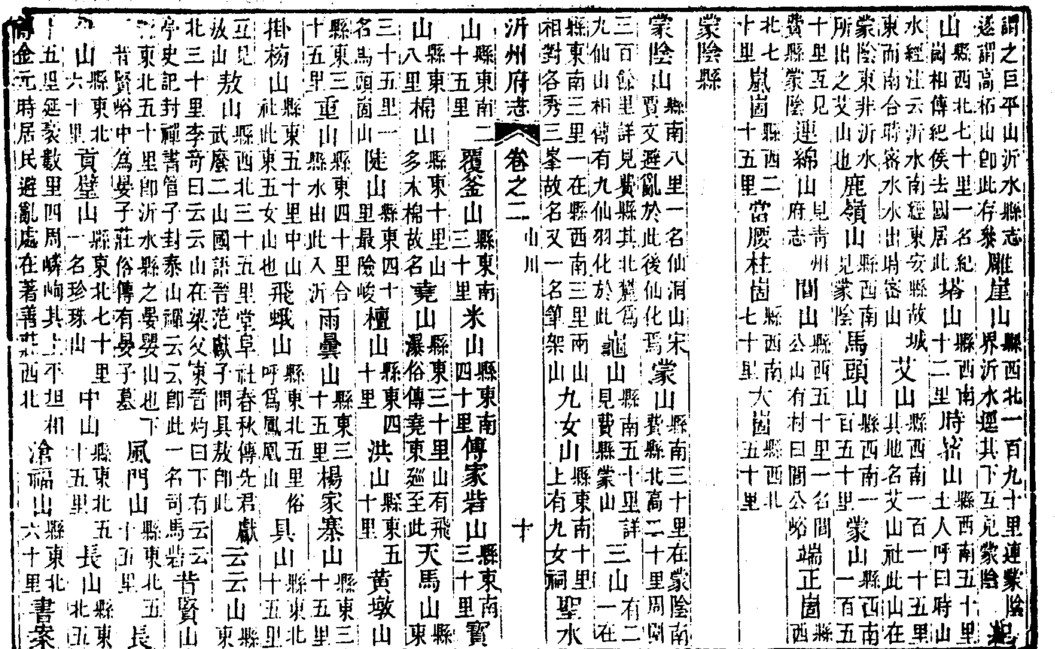 謂之巨平山沂水縣志遂謂高柘山即此存參雕崖山縣西北一百九十里連蒙陰界沂水逕其下互見蒙陰紀
山縣西北七十里一名紀崮相傳紀侯去國居此塔山縣西南十二里時密山縣西南五十里土人呼曰時山
水經注云沂水南逕東安縣故城東而南合時密水水出時密山艾山縣西南一百一十五里其地名艾山社此山在
蒙陰東非沂水所出之艾山也鹿嶺山縣西南見蒙陰馬頭山縣西南一百五十里蒙山縣西南一百五
十里互見費縣蒙陰連綿山見青州府志閭山縣西五十里一名閭公山有村曰閭公峪端正崮縣西
北七十里嵐崮縣西二十五里當腰柱崮縣西南七十里大崮縣西北五十里
蒙陰縣
蒙陰山縣南八里一名仙洞山宋賈文避亂於此後仙化焉蒙山縣南三十里在蒙陰南費縣北高二十里周圍
三百餘里詳見費縣其北麓為九仙山相傳有九仙羽化於此龜山縣南五十里詳見費縣蒙山三山有二一在
縣東南三里一在縣西南三里兩山相對各秀三峯故名又一名筆架山九女山縣東南十里上有九女祠聖水
沂州府志 卷之二 山川 十
山縣東南二十五里覆釜山縣東南三十里米山縣東南四十里傅家砦山縣東南三十里寶
山縣東八里棉山縣東十里山多木棉故名堯山縣東三十里山有飛瀑俗傳堯東巡至此天馬山縣東
三十五里一名馬頭崮山陡山縣東四十里最險峻檀山縣東四十里洪山縣東五十里黃墩山
縣東三十五里重山縣東四十里合縣水出此入沂雨曇山縣東三十五里楊家寨山縣東三十五里
掛榜山縣東五十里中山社此東五女山也飛蛾山縣東北五里俗呼為鳳凰山具山縣東北十五里
互見敖山敖山縣西北三十五里堂阜社春秋傳先君獻武廢二山國語晉范獻子問具敖即此云云山縣東
北三十里李奇曰云云山在梁父東晉灼曰下有云云亭史記封禪書管子封泰山禪云云即此一名司馬砦昔賢山
縣東北五十里即沂水縣之晏嬰山也下有昔賢峪中為晏子莊俗傳有晏子墓風門山縣東北五十五里長
山縣東北六十里貢壁山縣東北七十里一名珍珠山中山縣東北五十五里長山縣東北五
十五里延袤數里四周嶙峋其上平坦相傳金元時居民避亂處在著善莊西北滄福山縣東北六十里書案